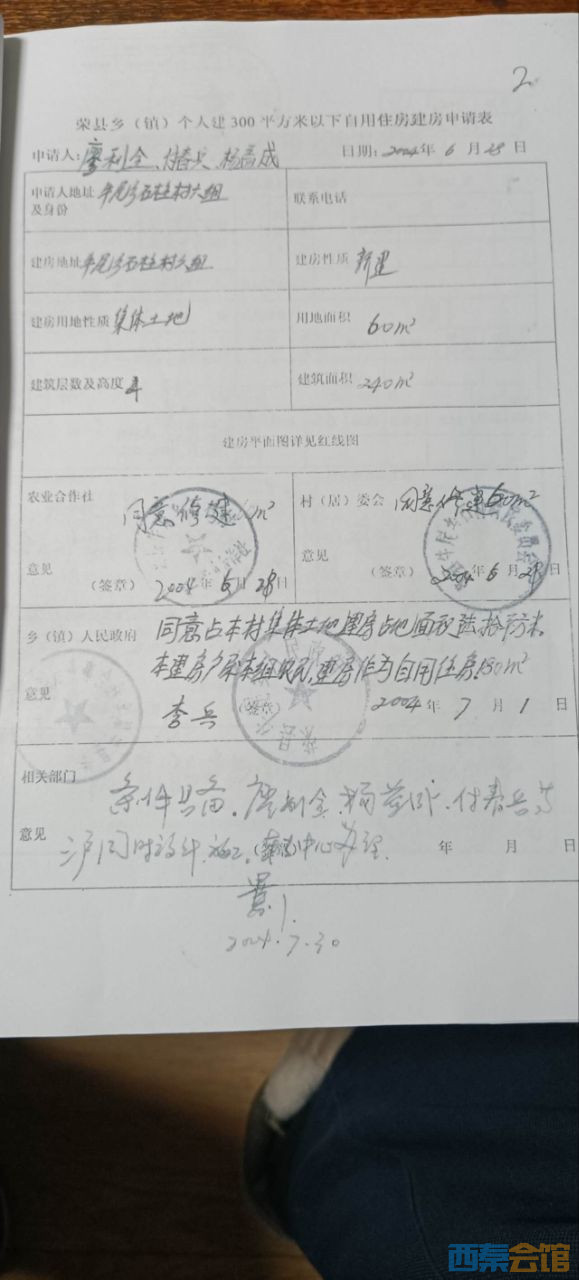 2
荣县乡（镇）个人建300平方米以下自用住房建房申请表
申请人：廖利全、付春兵 杨 成 日期：2004年6月28日
申请人地址及身份 石柱村六组 联系电话
建房地址 石柱村六组 建房性质 新建
建房用地性质 集体土地 用地面积 60m²
建筑层数及高度 4 建筑面积 240m²
建房平面图详见红线图
农业合作社 同意修建 m² 村（居）委会 同意修建60m²
意见 （签章） 2004年6月28日 意见 （签章） 2004年6月28日
乡（镇）人民政府 同意占本村集体土地建房占地面积陆拾平方米，
本建房户系本组农民，建房作为自用住房180m²
意见 李兵 （签章） 2004年7月1日
相关部门 条件具备，廖利全、杨 、付春兵等
意见 三户同时设计、施工， 中心办理 年 月 日
2004.7.30
西秦会馆